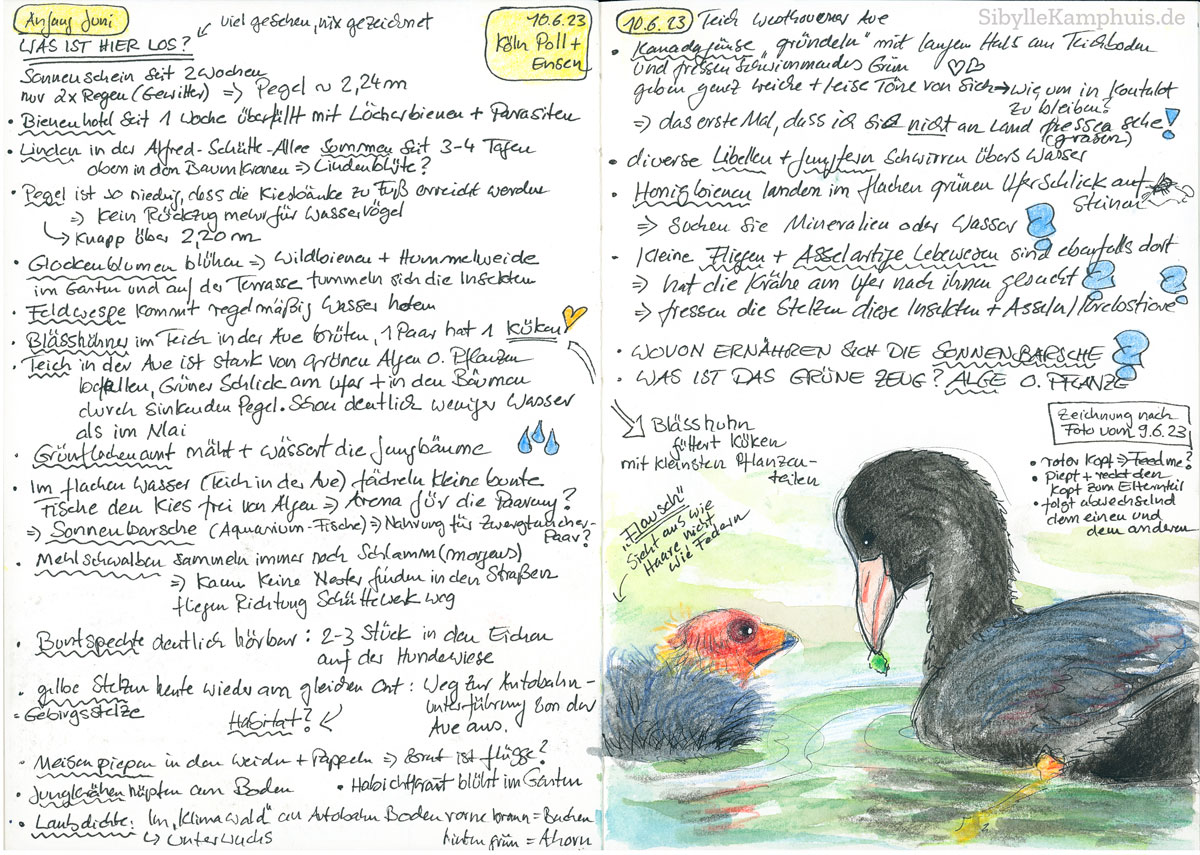 Anfang Juni
viel gesehen, nix gezeichnet
WAS IST HIER LOS?
10.6.23
Köln Poll +
Ensen
Sonnenschein seit 2 Wochen
nur 2x Regen (Gewitter) => Pegel ~ 2,24m
• Bienenhotel seit 1 Woche überfüllt mit Löcherbienen + Parasiten
• Linden in der Alfred-Schütte-Allee summen seit 3-4 Tagen
oben in den Baumkronen => Lindenblüte?
• Pegel ist so niedrig, dass die Kiesbänke zu Fuß erreicht werden
=> Kein Rückzug mehr für Wasservögel
↳ Knapp über 2,20m
• Glockenblumen blühen => Wildbienen + Hummelweide
im Garten und auf der Terrasse tummeln sich die Insekten
• Feldwespe kommt regelmäßig Wasser holen
• Blässhühner im Teich in der Aue brüten, 1 Paar hat 1 Küken
• Teich in der Aue ist stark von grünen Algen o. Pflanzen
befallen, Grüner Schlick am Ufer + in den Bäumen
durch sinkenden Pegel. Schon deutlich weniger Wasser
als im Mai
• Grünflächenamt mäht + wässert die Jungbäume
• Im flachen Wasser (Teich in der Aue) fächeln kleine bunte
Fische den Kies frei von Algen => Arena für die Paarung?
=> Sonnenbarsche (Aquarium-Fische) => Nahrung für Zwergtaucher-
Paar?
• Mehlschwalben sammeln immer noch Schlamm (morgens)
=> Kann keine Nester finden in den Straßen
fliegen Richtung Schüttewerk weg
• Buntspechte deutlich hörbar: 2-3 Stück in den Eichen
auf der Hundewiese
• gelbe Stelzen heute wieder am gleichen Ort: Weg zur Autobahn-
= Gebirgsstelze
unterführung von der
Aue aus.
Habitat?
• Meisen piepen in den Weiden + Pappeln => Brut ist flügge?
• Jungkrähen hüpfen am Boden
• Habichtskraut blüht im Garten
• Laubdichte: Im "Klimawald" an Autobahn Boden vorne braun = Buchen
↳ Unterwuchs
hinten grün = Ahorn
10.6.23 Teich Westhovener Aue
SibylleKamphuis.de
• Kanadagänse "gründeln" mit langem Hals am Teichboden
und fressen schwimmendes Grün
geben ganz weiche + leise Töne von sich → wie um in Kontakt
zu bleiben?
=> das erste Mal, dass ich sie nicht an Land fressen sehe!
(grasen)
• diverse Libellen + Jungfern schwirren übers Wasser
• Honigbienen landen im flachen grünen Uferschlick auf
Steinen
=> suchen sie Mineralien oder Wasser?
• Kleine Fliegen + Asselartige Lebewesen sind ebenfalls dort
=> hat die Krähe am Ufer nach ihnen gesucht?
=> fressen die Stelzen diese Insekten + Asseln/Krebstiere?
• WOVON ERNÄHREN SICH DIE SONNENBARSCHE?
• WAS IST DAS GRÜNE ZEUG? ALGE O. PFLANZE?
Blässhuhn
füttert Küken
mit kleinsten Pflanzen-
teilen
Zeichnung nach
Foto vom 9.6.23
• roter Kopf => Feed me?
• piept + reckt den
Kopf zum Elternteil
• folgt abwechselnd
dem einen und
dem anderen
"Flausch"
Sieht aus wie
Haare nicht
wie Federn